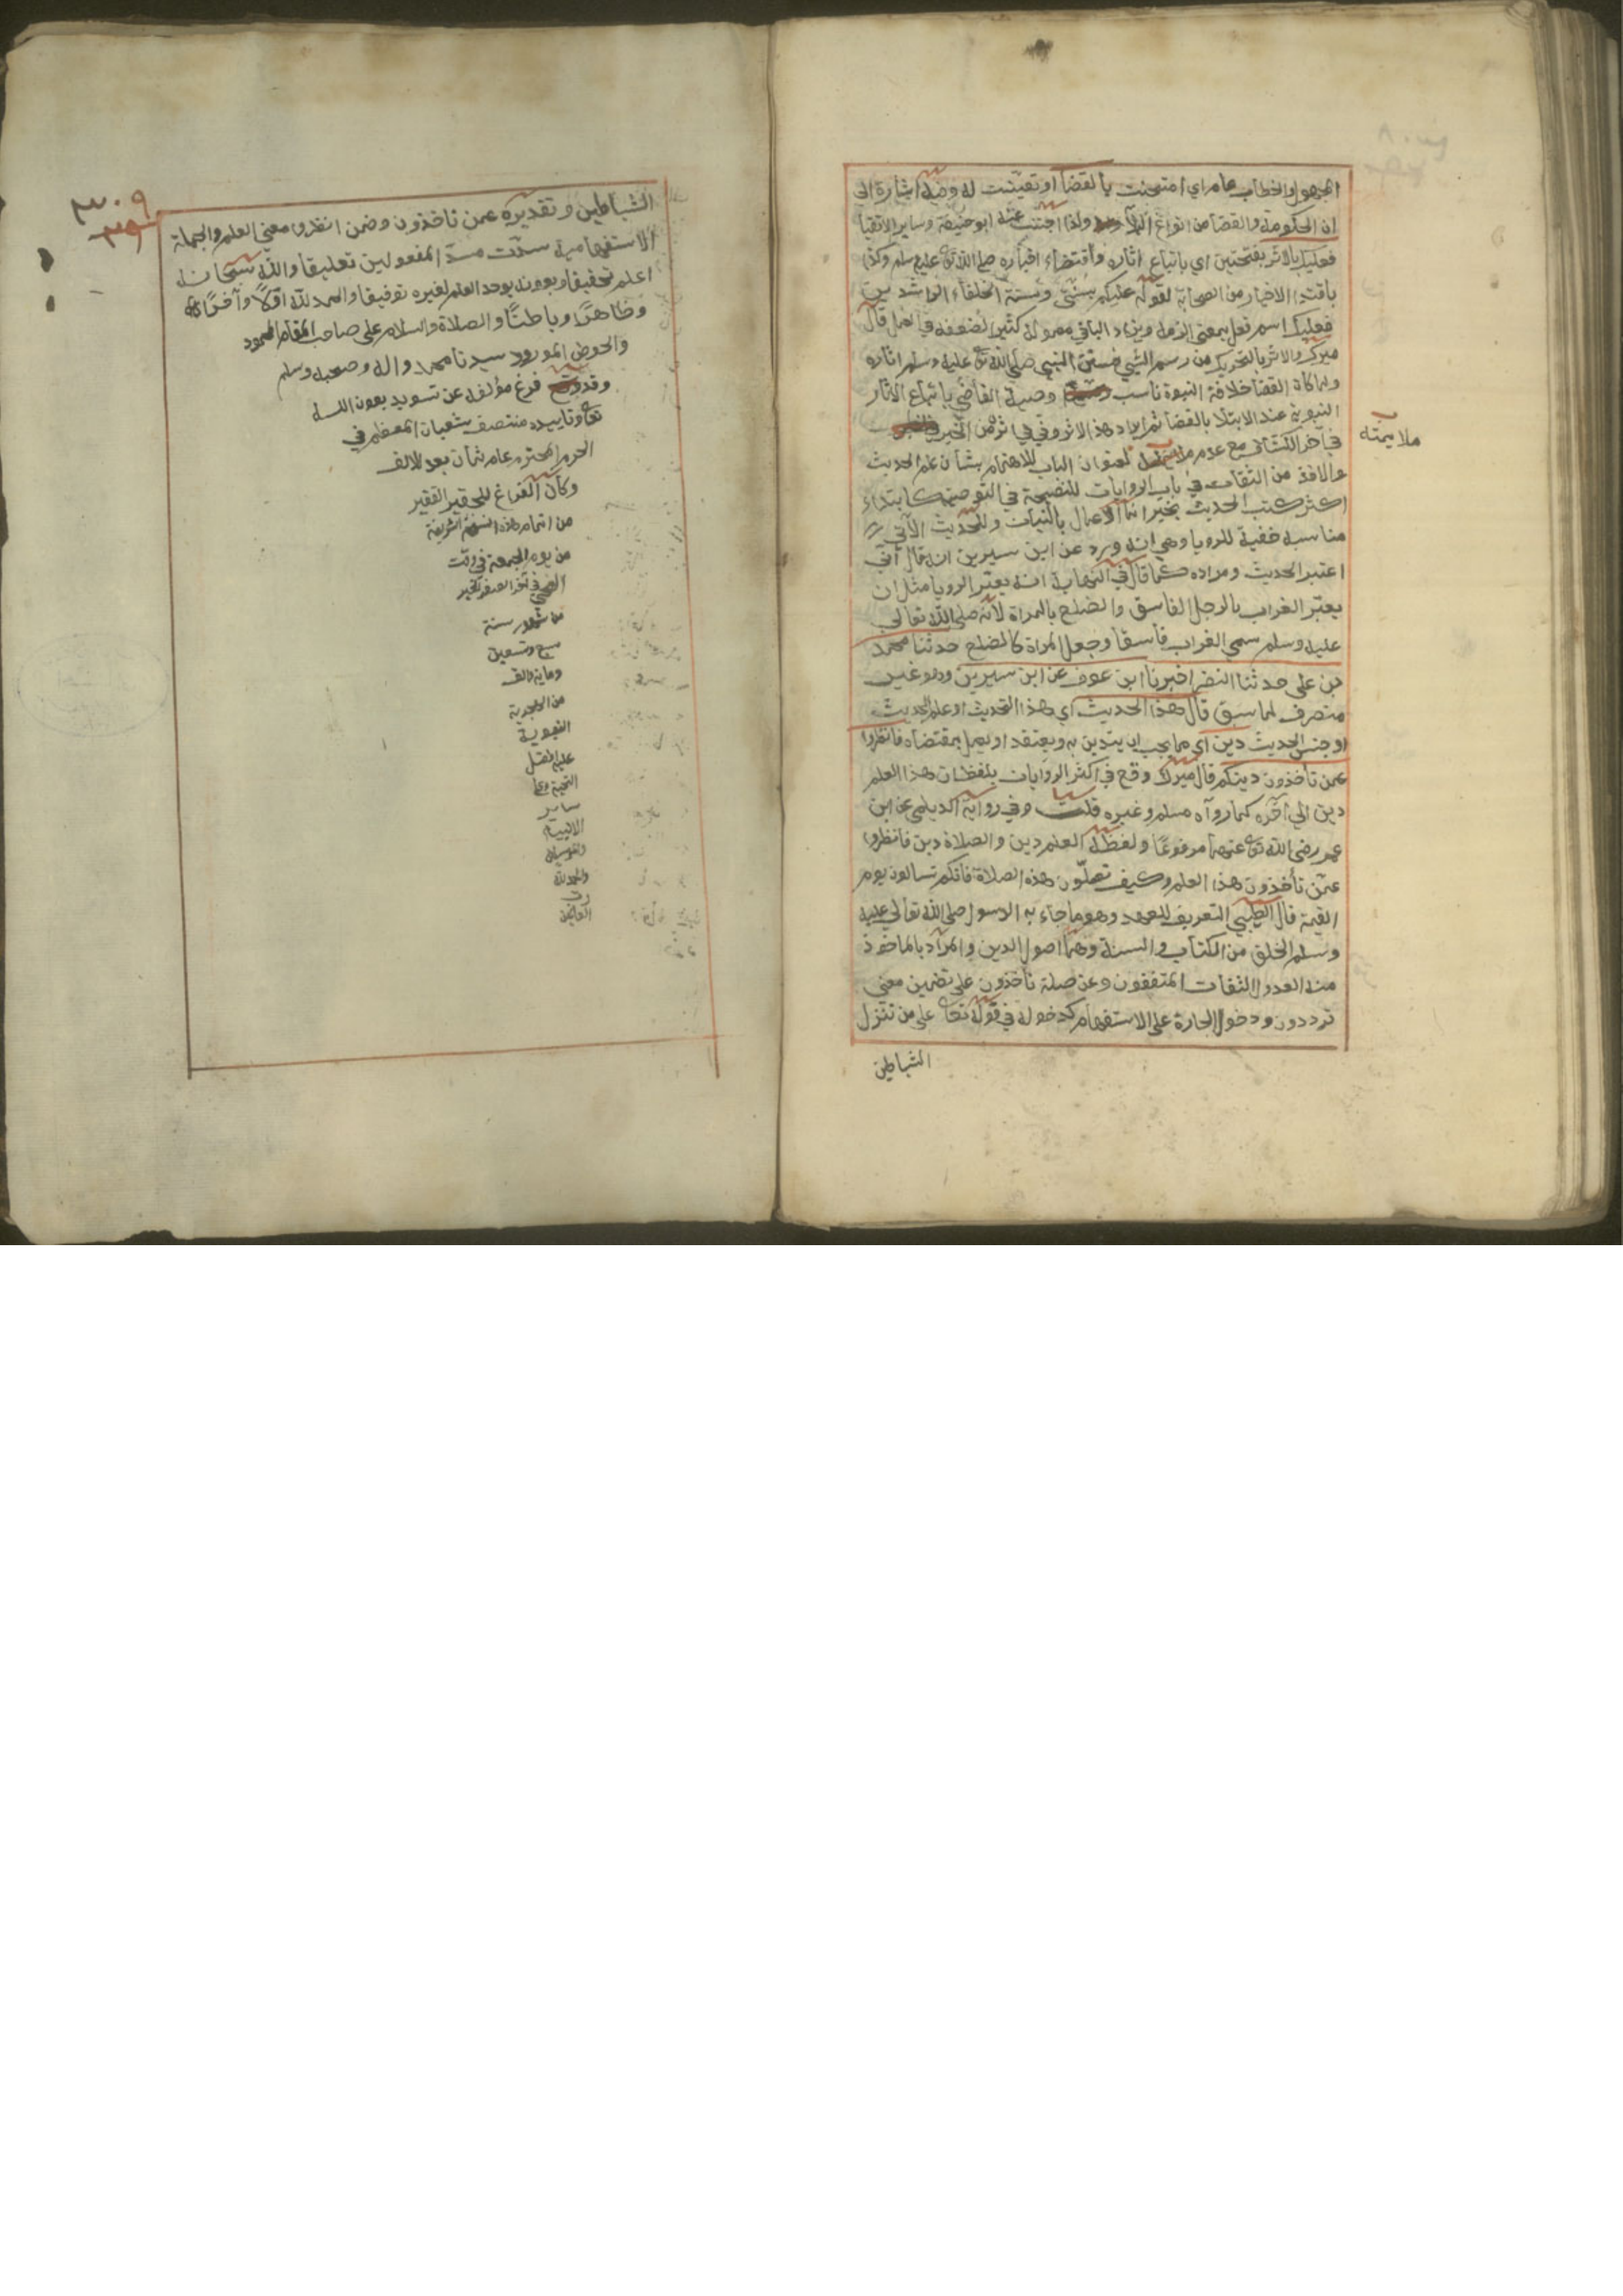 المجهول والخطاب عام اي امتحنت بالقضا او تعينت له وفيه اشارة الي
ان الحكومة والقضا من انواع البلا ولذا اجتنب عنه ابو حنيفة وساير الاتقيا
فعليك بالاثر بفتحتين اي باتباع اثاره واقتضاء اخباره صلي الله تع عليه وسلم وكذا
باقتدا الاخيار من الصحابة لقوله عليكم بسنتي وسنة الخلفاء الراشدين
فعليك اسم فعل بمعني الزم ويزاد الباقي معموله كثيرا لضعفه في العمل قال
ميرك والاثر بالتحريك من رسم الشيي وسنن النبي صلي الله تع عليه وسلم اثاره
ولما كان القضا خلافة النبوة ناسب وصية القاضي باتباع الاثار
النبوية عند الابتلا بالقضا ثم ايراد هذا الاثر وفي اثر من الخبر
في آخر الكتاب مع عدم ملايمته لعنوان الباب للاهتمام بشان علم الحديث
والاخذ من الثقات في باب الروايات للنصيحة في التوصية كابتداء
اكثر كتب الحديث بخبر انما الاعمال بالنيات وللحديث الآتي
مناسبة خفية للرويا وهي انه ورد عن ابن سيرين انه قال اني
اعتبر الحديث ومراده كما قال في النهاية انه يعبر الرويا مثل ان
يعبر الغراب بالرجل الفاسق والضلع بالمراة لانه صلي الله تعالي
عليه وسلم سمي الغراب فاسقا وجعل المراة كالضلع حدثنا محمد
بن علي حدثنا النضر اخبرنا ابن عوف عن ابن سيرين وهو غير
منصرف لما سبق قال هذا الحديث اي هذا التحديث او علم الحديث
او جنس الحديث دين اي مما يجب ان يتدين به ويعتقد او يعمل بمقتضاه فانظروا
عمن تأخذون دينكم قال ميرك وقع في اكثر الروايات بلفظ ان هذا العلم
دين الي آخره كما رواه مسلم وغيره قلت وفي رواية الديلمي عن ابن
عمر رضي الله تع عنهما مرفوعا ولفظه العلم دين والصلاة دين فانظروا
عمن تأخذون هذا العلم وكيف تصلون هذه الصلاة فانكم تسالون يوم
القيمة قال الطيبي التعريف للعهد وهو ما جاء به الرسول صلي الله تعالي عليه
وسلم الخلق من الكتاب والسنة وهما اصول الدين والمراد بالماخوذ
منه العدول الثقات المتفقون وعن صلة تأخذون علي تضمين معني
ترددون ودخول الجارة علي الاستفهام كدخوله في قوله تعا علي من تنزل
الشياطين
ملايمته
٣٠٩
الشياطين وتقديره عمن تاخذون وضمن انظروا معني العلم والجملة
الاستفهامية سدت مسد المفعولين تعليقا والله سبحانه
اعلم تحقيقا وبعونه يوجد العلم لغيره توفيقا والحمد لله اولا وآخرا
وظاهرا وباطنا والصلاة والسلام علي صاحب المقام المحمود
والحوض المورود سيدنا محمد واله وصحبه وسلم
وقد فرغ مؤلفه عن تسويد بعون الله
تعا وتاييده منتصف شعبان المعظم في
الحرم المحترم عام ثمان بعد الالف
وكان الفراغ للحقير الفقير
من اتمام هذه النسخة الشريفة
من يوم الجمعة في وقت
الضحي
سنة
سبع وتسعين
وماية والف
من الهجرية
النبوية
عليه افضل
التحية وعلي
ساير
الانبياء
والمرسلين
والحمد لله
رب
العالمين